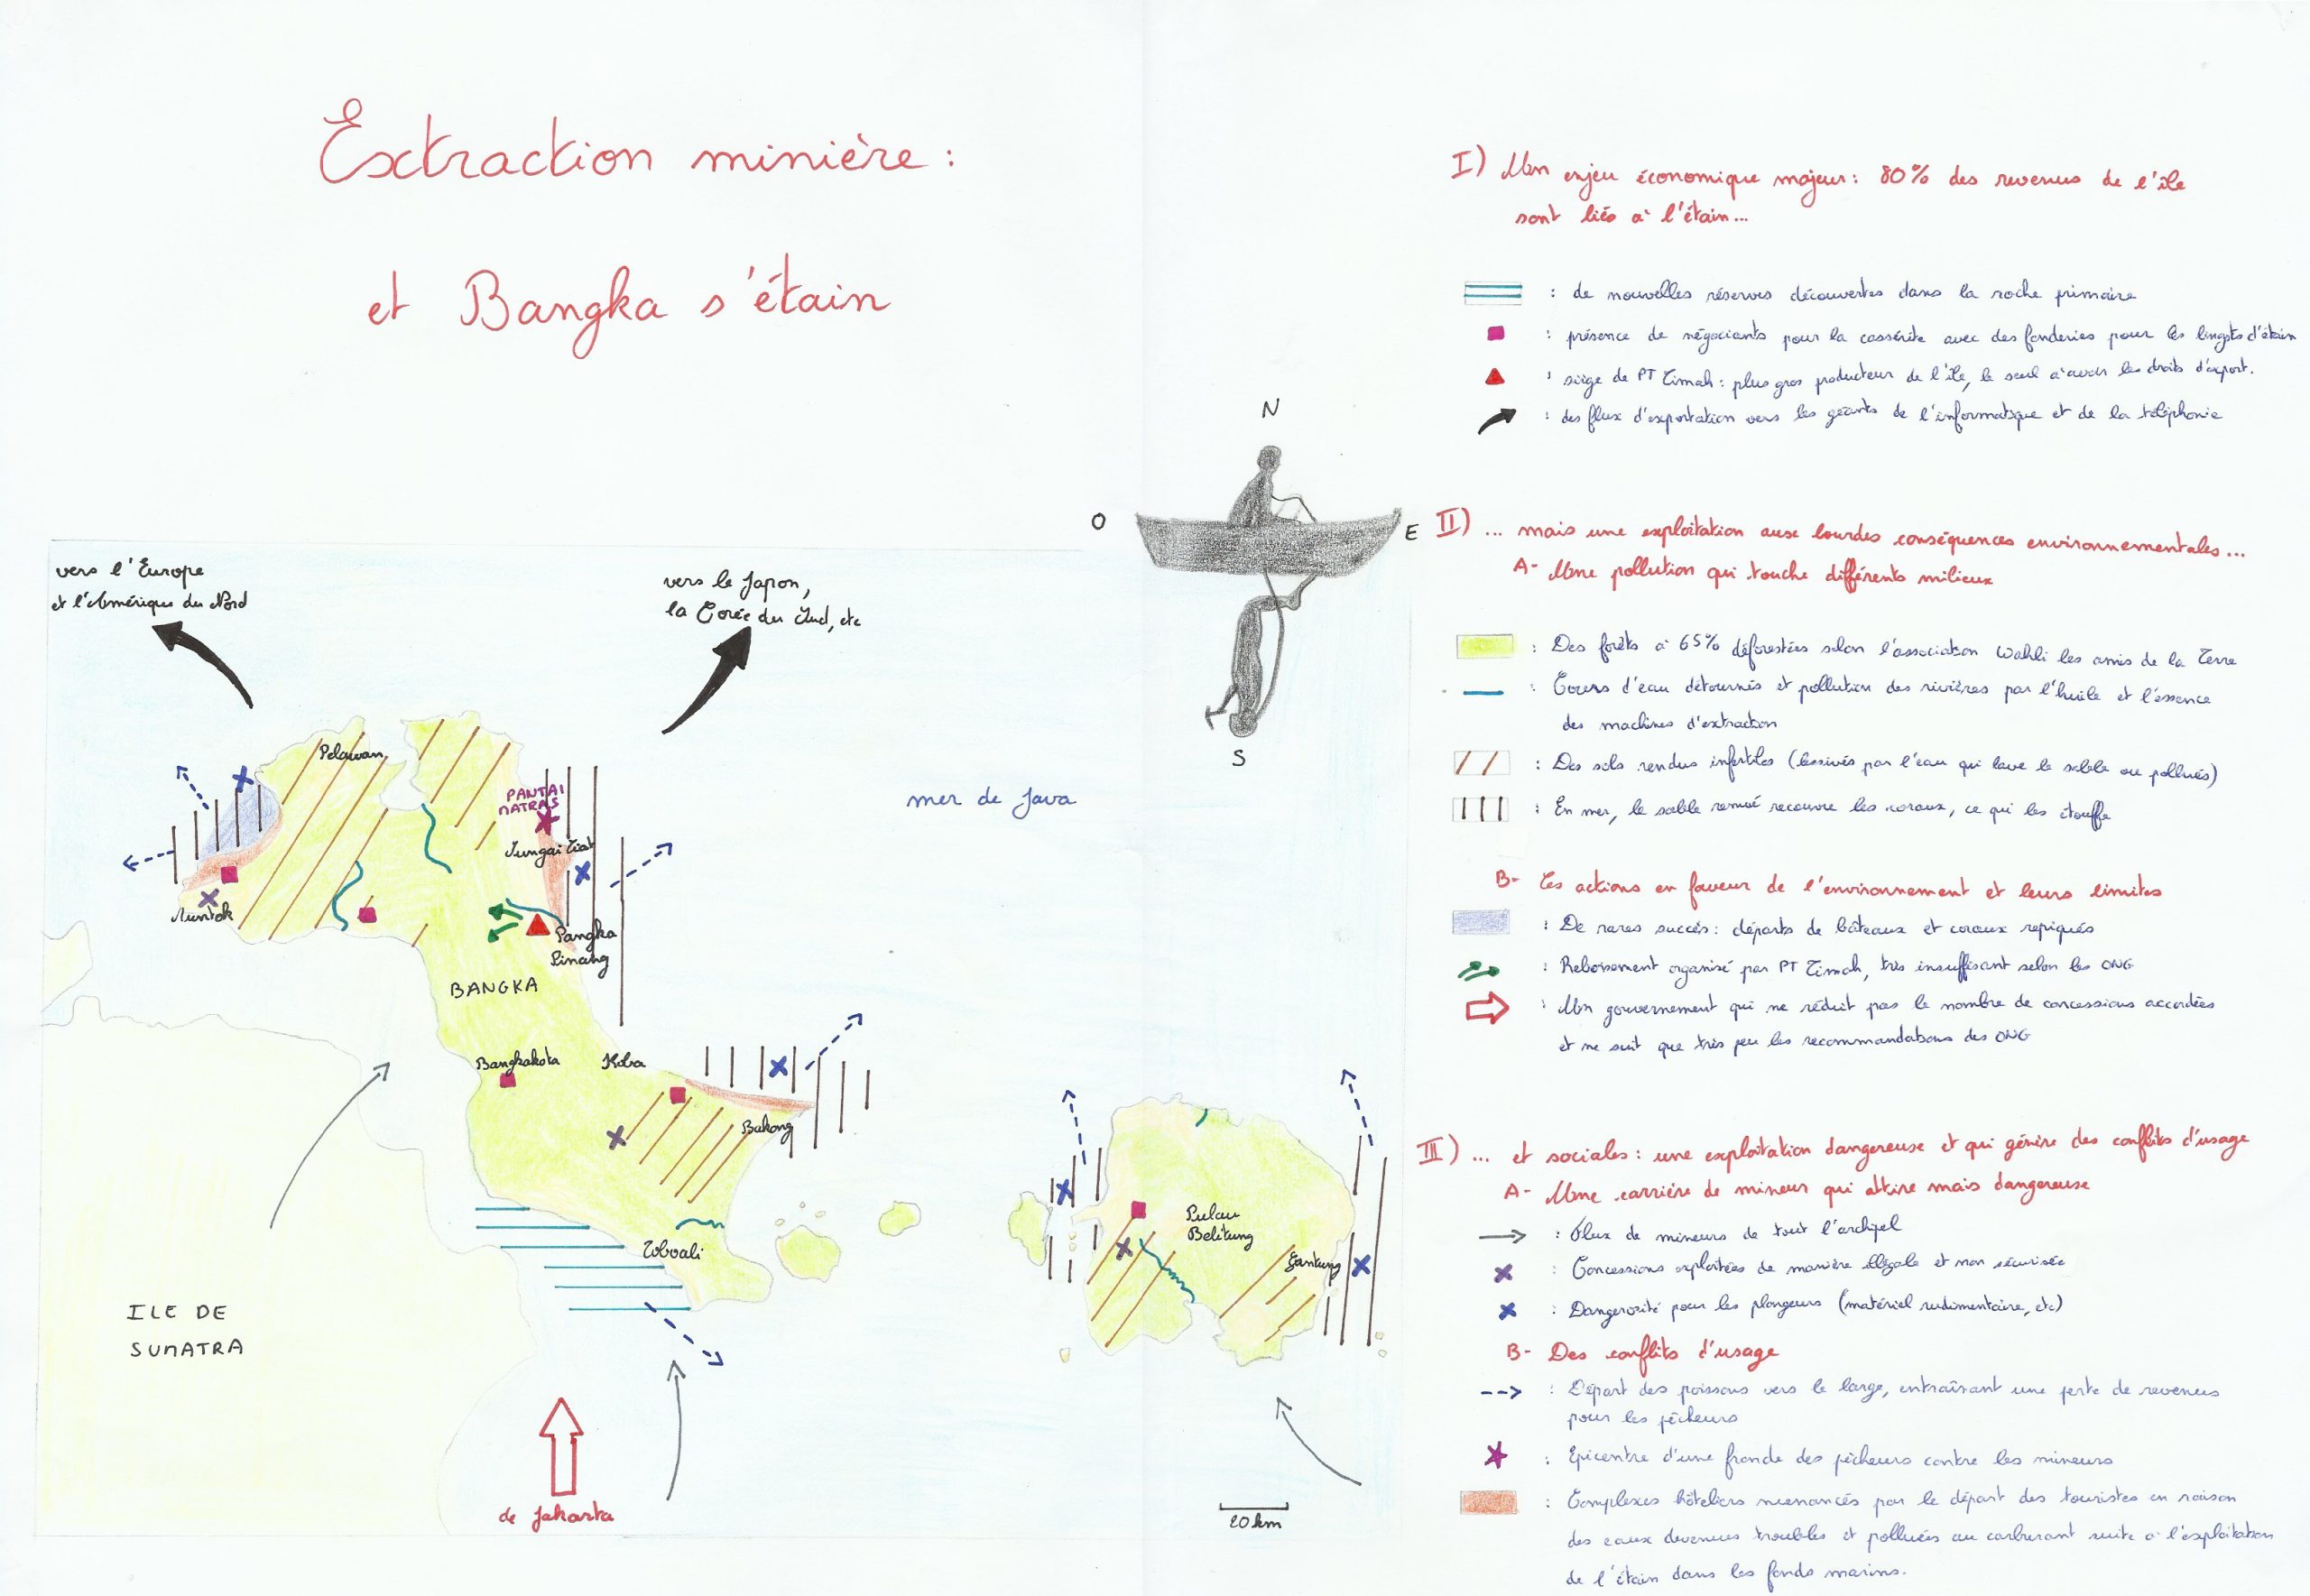 Extraction minière :
et Bangka s'étain
N
O
E
S
vers l'Europe
et l'Amérique du Nord
vers le Japon,
la Corée du Sud, etc
mer de Java
Pelawan
PANTAI
MATRAS
Sungai Liat
Muntok
Pangka
Pinang
BANGKA
Bangkakota
Koba
Bakong
Toboali
Pulau
Belitung
Gantung
ILE DE
SUMATRA
de Jakarta
20 km
I) Un enjeu économique majeur : 80% des revenus de l'île
sont liés à l'étain...
: de nouvelles réserves découvertes dans la roche primaire
: présence de négociants pour la cassérite avec des fonderies pour les lingots d'étain
: siège de PT Timah : plus gros producteur de l'île, le seul à avoir les droits d'export.
: des flux d'exportation vers les géants de l'informatique et de la téléphonie
II) ... mais une exploitation aux lourdes conséquences environnementales...
A- Une pollution qui touche différents milieux
: Des forêts à 65% déforestées selon l'association Wahli les amis de la Terre
: Cours d'eau détournés et pollution des rivières par l'huile et l'essence
des machines d'extraction
: Des sols rendus infertiles (lessivés par l'eau qui lave le sable ou pollués)
: En mer, le sable remué recouvre les coraux, ce qui les étouffe
B- Les actions en faveur de l'environnement et leurs limites
: De rares succès : départs de bâteaux et coraux repiqués
: Reboisement organisé par PT Timah, très insuffisant selon les ONG
: Un gouvernement qui ne réduit pas le nombre de concessions accordées
et ne suit que très peu les recommandations des ONG
III) ... et sociales : une exploitation dangereuse et qui génère des conflits d'usage
A- Une carrière de mineur qui attire mais dangereuse
: Flux de mineurs de tout l'archipel
: Concessions exploitées de manière illégale et non sécurisée
: Dangerosité pour les plongeurs (matériel rudimentaire, etc)
B- Des conflits d'usage
: Départ des poissons vers le large, entraînant une perte de revenus
pour les pêcheurs
: Epicentre d'une fronde des pêcheurs contre les mineurs
: Complexes hôteliers menancés par le départ des touristes en raison
des eaux devenues troubles et polluées au carburant suite à l'exploitation
de l'étain dans les fonds marins.